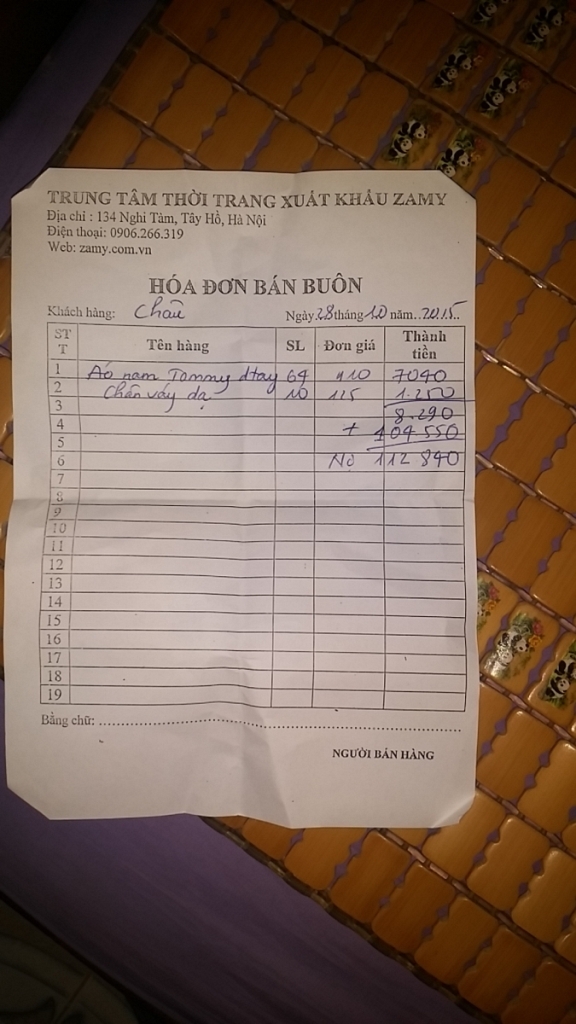 TRUNG TÂM THỜI TRANG XUẤT KHẨU ZAMY
Địa chỉ : 134 Nghi Tàm, Tây Hồ, Hà Nội
Điện thoại: 0906.266.319
Web: zamy.com.vn
HÓA ĐƠN BÁN BUÔN
Khách hàng: Châu Ngày 28 tháng 10 năm 2015
STT Tên hàng SL Đơn giá Thành tiền
1 Áo nam Tommy dtay 64 110 7040
2 Chân váy dạ 10 125 1.250
3 8.290
4 + 104 550
5
6 Nợ 112 840
7
8
9
10
11
12
13
14
15
16
17
18
19
Bằng chữ:
NGƯỜI BÁN HÀNG